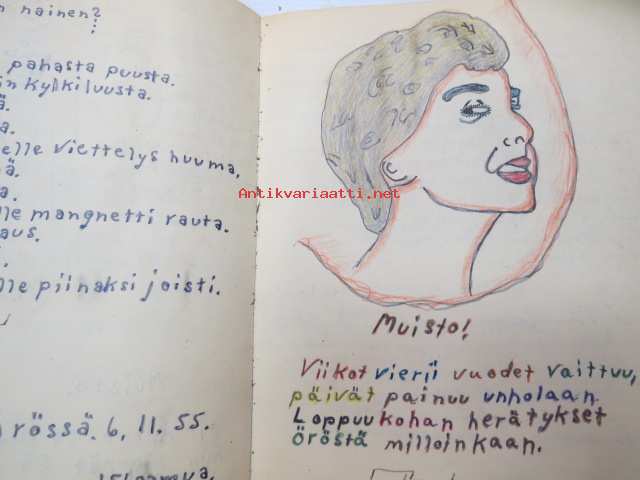 n nainen?
pahasta puusta.
in kylkiluusta.
ä.
a.
elle viettelys huuma,
ä.
a.
lle mangnetti rauta.
aus.
lle piinaksi joisti.
rössä. 6, 11. 55.
Antikvariaatti.net
Muisto!
Viikot vierii vuodet vaittuu,
päivät painuu unholaan.
Loppuukohan herätykset
öröstä milloinkaan.